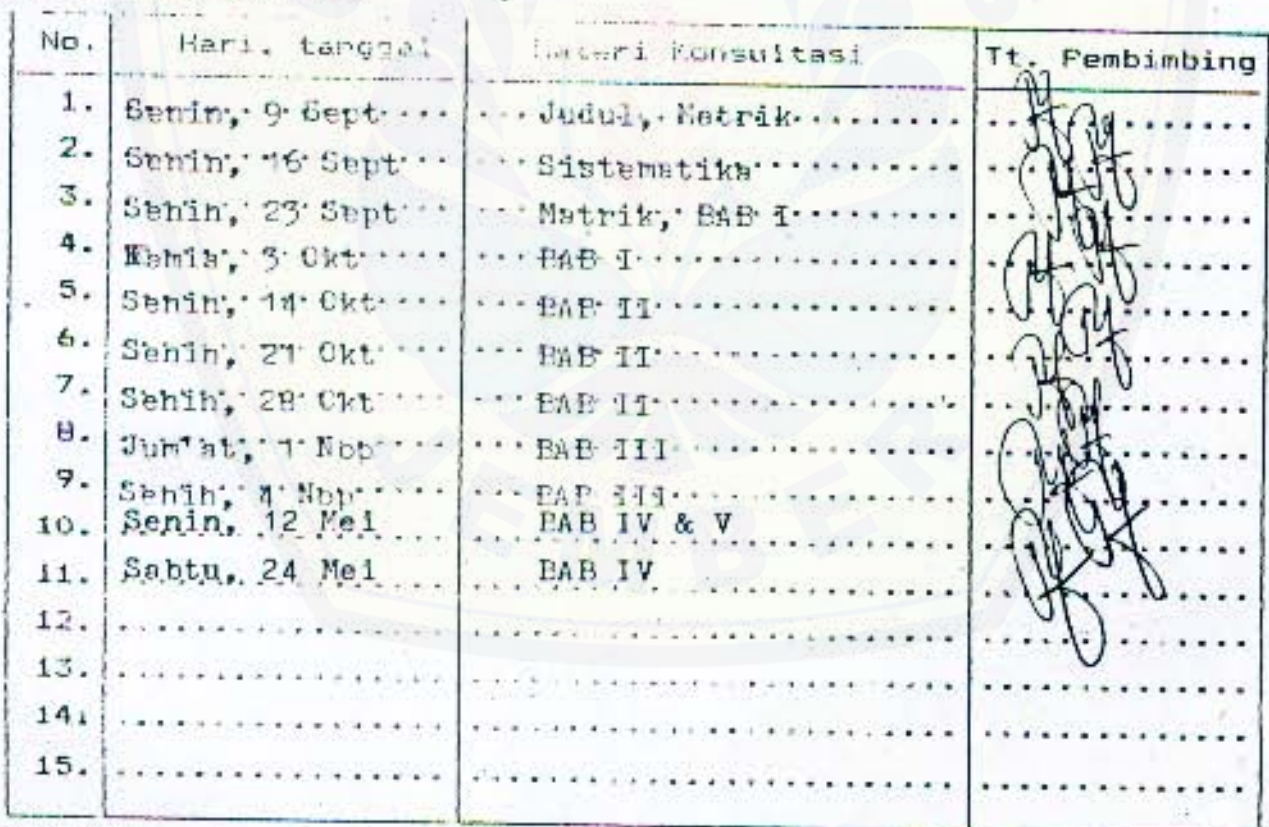 No. Hari, tanggal Materi Konsultasi Tt. Pembimbing
1. Senin, 9 Sept Judul, Matrik
2. Senin, 16 Sept Sistematika
3. Senin, 23 Sept Matrik, BAB I
4. Kamis, 3 Okt BAB I
5. Senin, 14 Okt BAB II
6. Senin, 21 Okt BAB II
7. Senin, 28 Okt BAB II
8. Jum'at, 1 Nop BAB III
9. Senin, 4 Nop BAB III
10. Senin, 12 Mei BAB IV & V
11. Sabtu, 24 Mei BAB IV
12.
13.
14.
15.